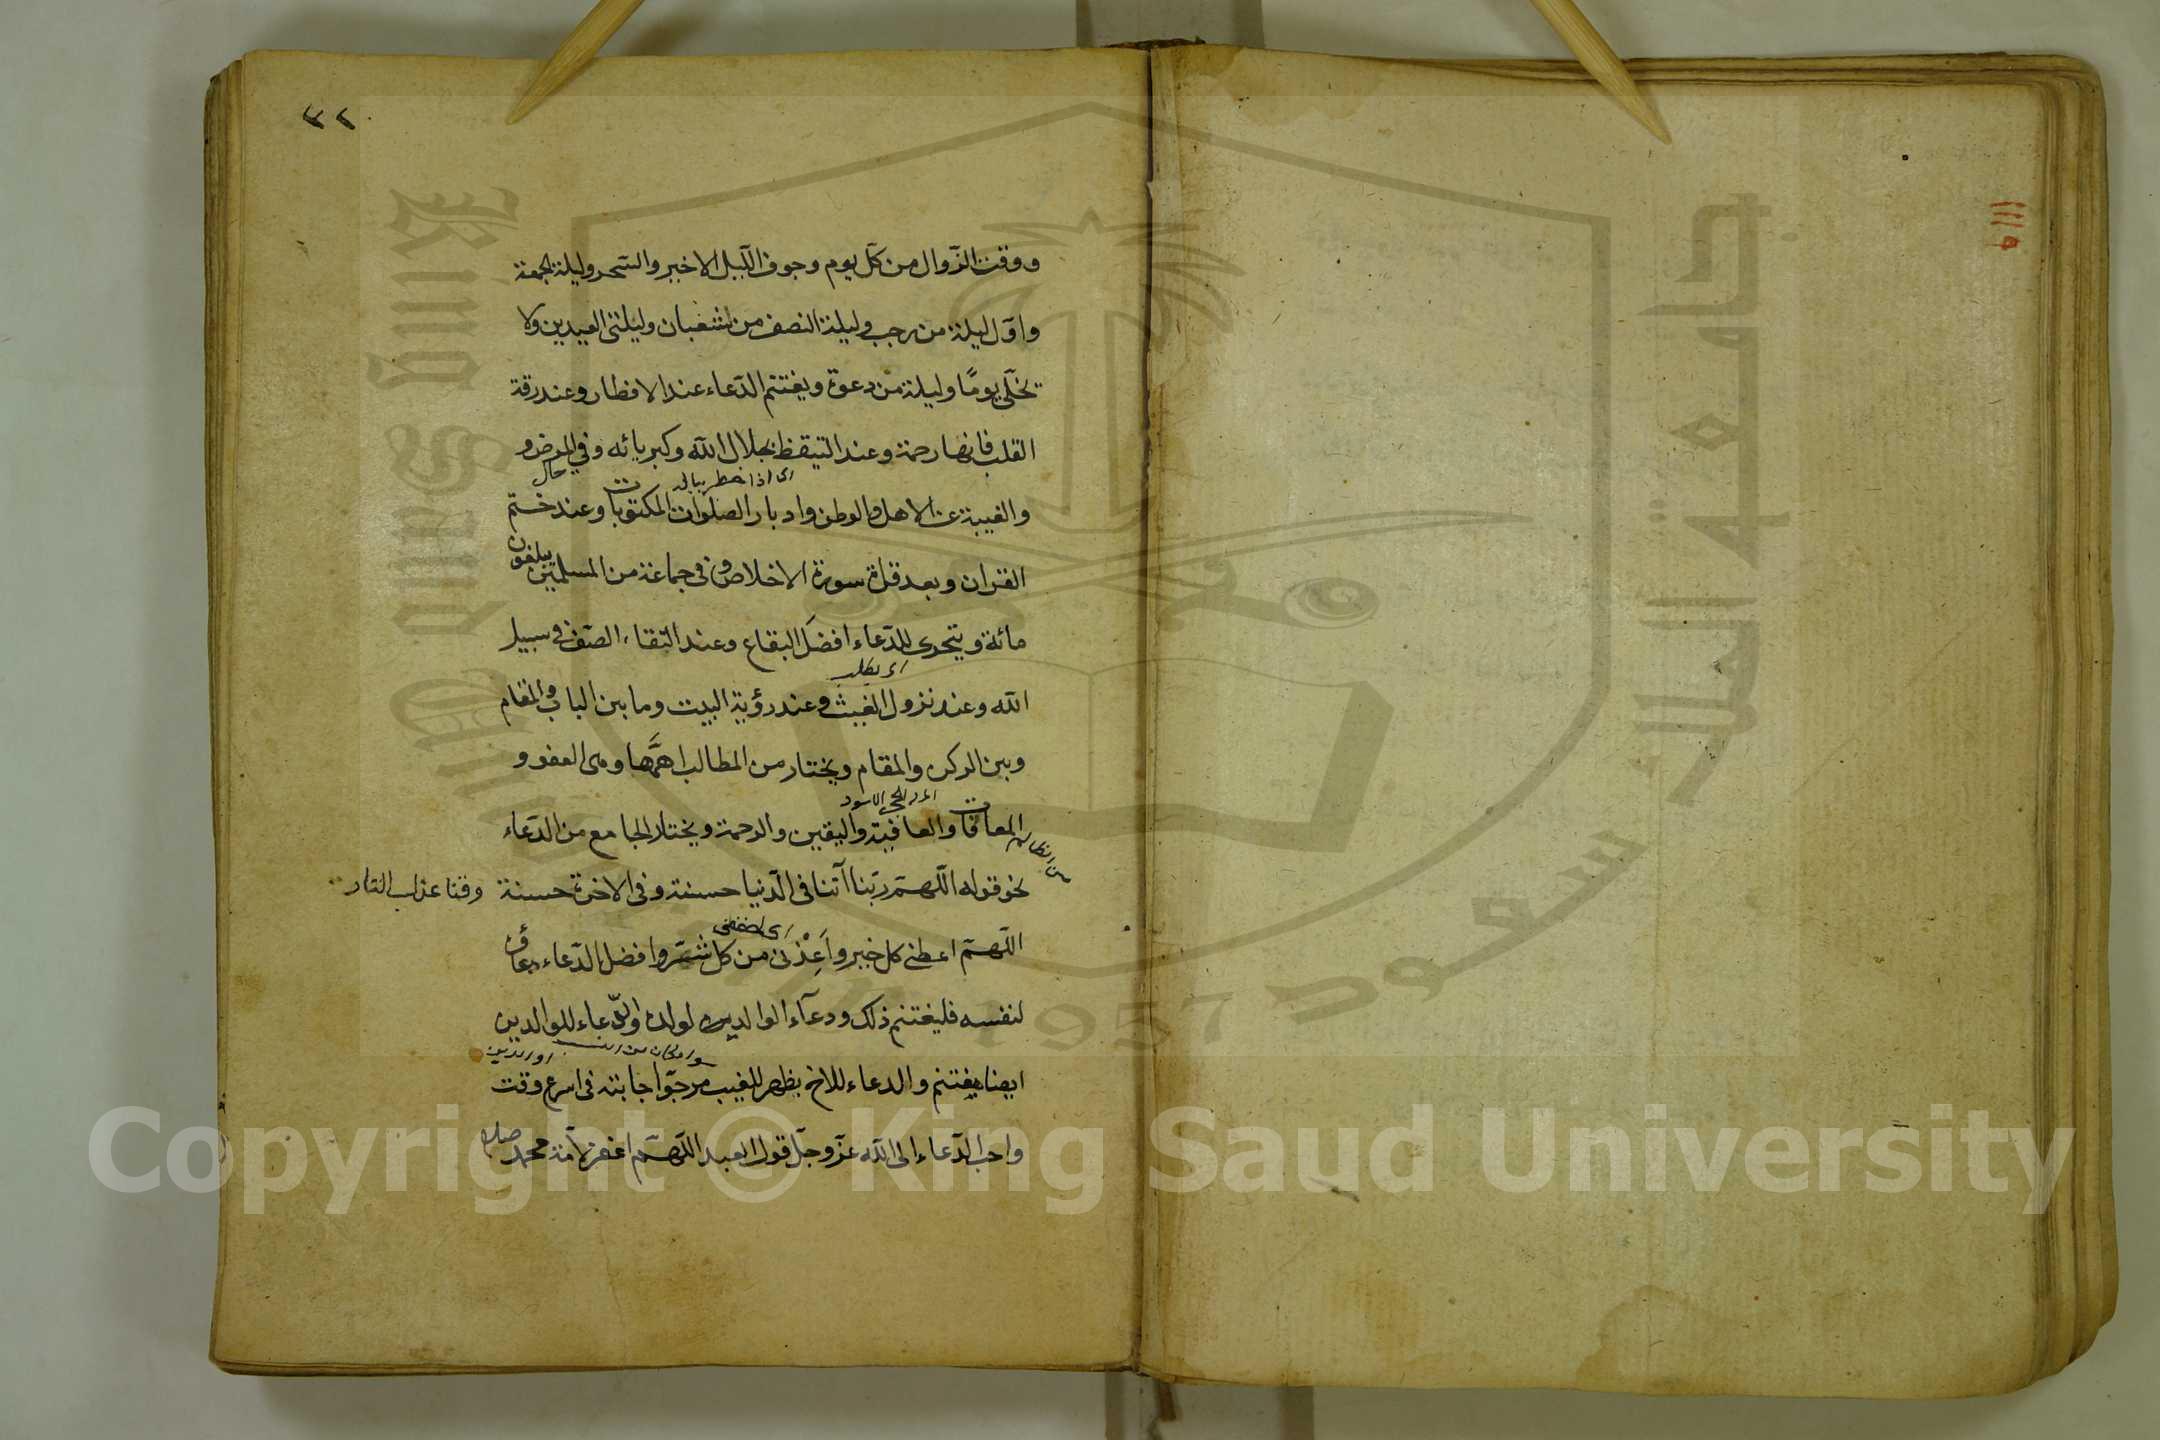 ٣٢
ووقت الزّوال من كلّ يوم وجوف اللّيل الاخير والسّحر وليلة الجمعة
واوّل ليلة من رجب وليلة النصف من شعبان وليلتى العيدين ولا
تخلّى يومًا وليلة من دعوة ويغتنم الدّعاء عند الافطار وعند رقة
القلب فانها رحمة وعند التيقظ بجلال الله وكبريائه وفي المرض و
اى اذا خطر بباله حال
والغيبة عن الاهل والوطن وادبار الصلوات المكتوبات وعند ختم
القران وبعد قراة سورة الاخلاص وفى جماعة من المسلمين يبلغون
مائة ويتحرى للدّعاء افضل البقاع وعند التقاء الصّف فى سبيل
اى يطلب
الله وعند نزول الغيث وعند رؤية البيت وما بين الباب والمقام
وبين الركن والمقام ويختار من المطالب اهمّها وهى العفو و
الحجر الاسود
المعافات والعافية واليقين والرحمة ويختار الجامع من الدّعاء
نحو قوله اللّهمّ ربّنا آتنا فى الدّنيا حسنة وفى الاخرة حسنة وقنا عذاب النار
اى احفظنى
اللّهمّ اعطنى كل خير واَعِذْنى من كل شرّ وافضل الدّعاء دعاؤه
لنفسه فليغتنم ذلك ودعآء الوالدين لولده والدّعاء للوالدين
ايضا يغتنم والدعاء للاخ بظهر الغيب مرجوّ اجابته فى اسرع وقت
واحب الدّعاء الى الله عزّ وجلّ قول العبد اللّهمّ اغفر لامّة محمد صلعم
١١١٥
King Saud University
جامعة الملك سعود
1957
Copyright © King Saud University